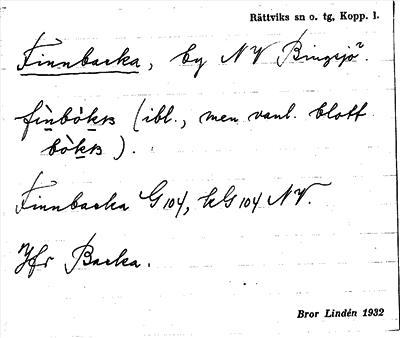 Rättviks sn o. tg, Kopp. l.
Finnbacka, by NV Bingsjö.
fìnbòkɞ (ibl., men vanl. blott
bòkɞ).
Finnbacka G 104, kG 104 NV.
Jfr Backa.
Bror Lindén 1932